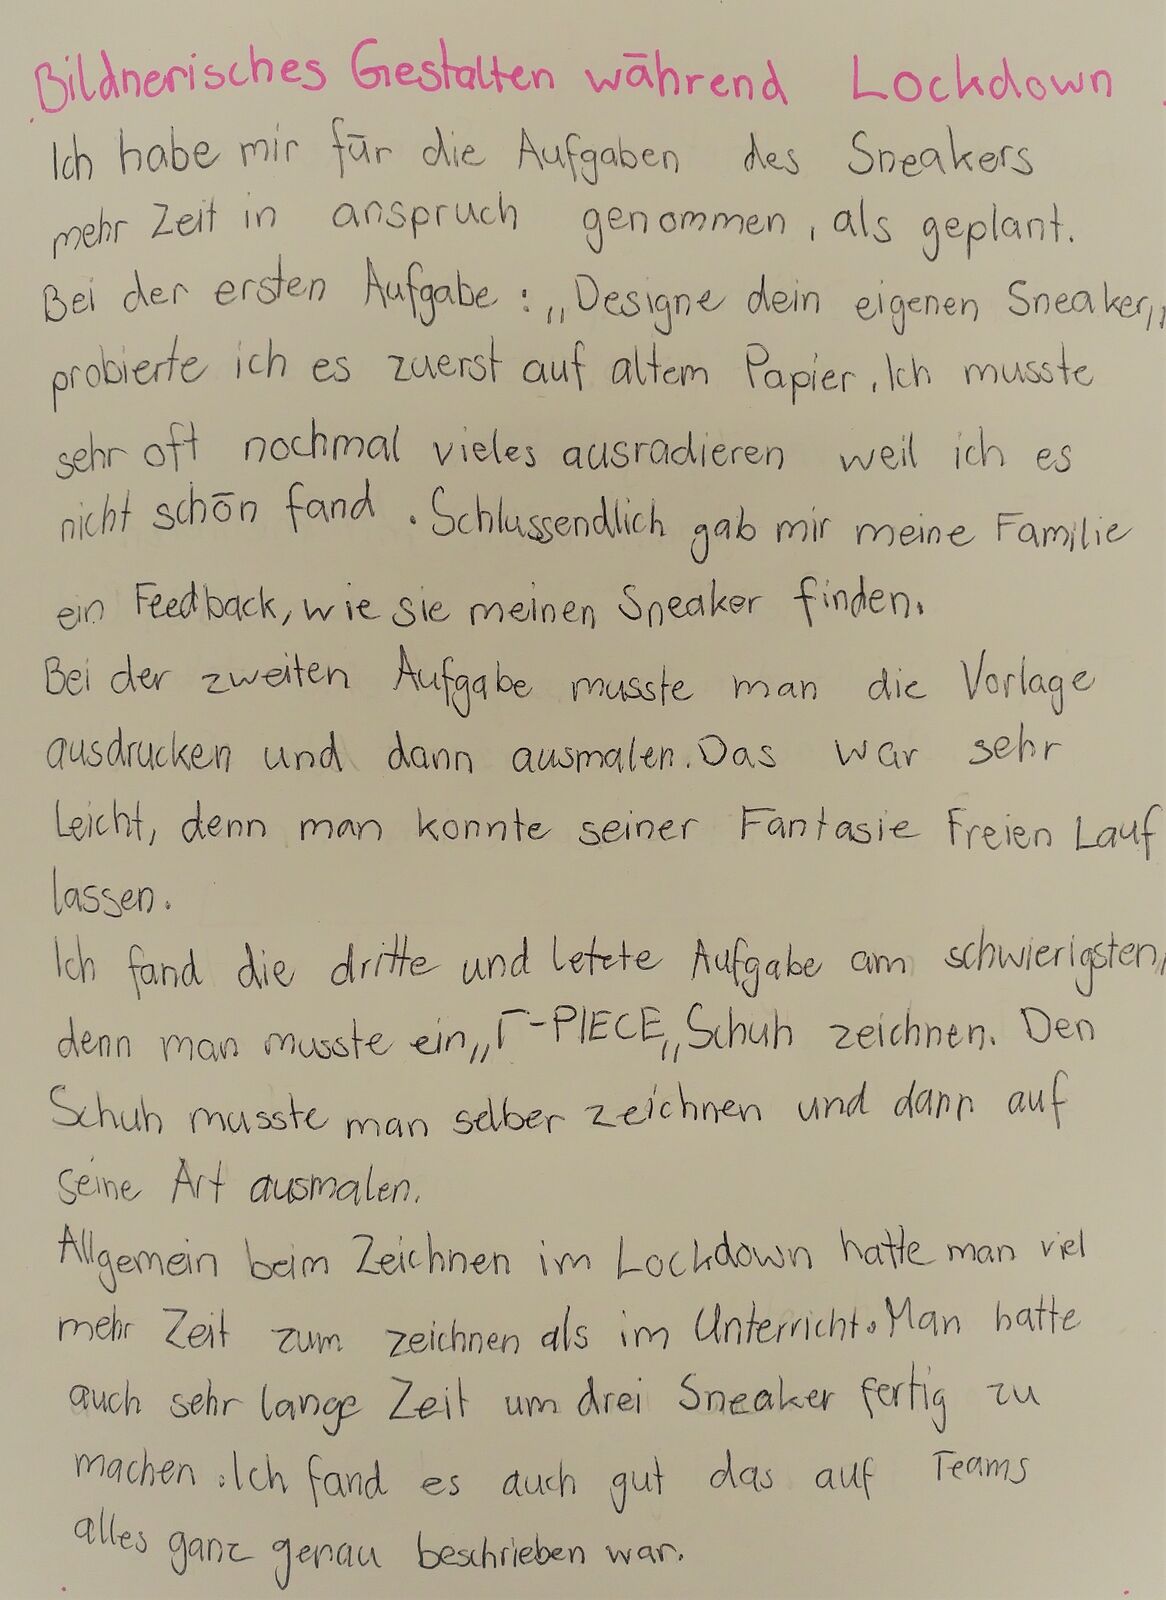 Bildnerisches Gestalten während Lockdown
Ich habe mir für die Aufgaben des Sneakers
mehr Zeit in anspruch genommen, als geplant.
Bei der ersten Aufgabe: „Designe dein eigenen Sneaker„
probierte ich es zuerst auf altem Papier. Ich musste
sehr oft nochmal vieles ausradieren weil ich es
nicht schön fand. Schlussendlich gab mir meine Familie
ein Feedback, wie sie meinen Sneaker finden.
Bei der zweiten Aufgabe musste man die Vorlage
ausdrucken und dann ausmalen. Das war sehr
Leicht, denn man konnte seiner Fantasie Freien Lauf
lassen.
Ich fand die dritte und letzte Aufgabe am schwierigsten,
denn man musste ein „ -PIECE„ Schuh zeichnen. Den
Schuh musste man selber zeichnen und dann auf
seine Art ausmalen.
Allgemein beim Zeichnen im Lockdown hatte man viel
mehr Zeit zum zeichnen als im Unterricht. Man hatte
auch sehr lange Zeit um drei Sneaker fertig zu
machen. Ich fand es auch gut das auf Teams
alles ganz genau beschrieben war.